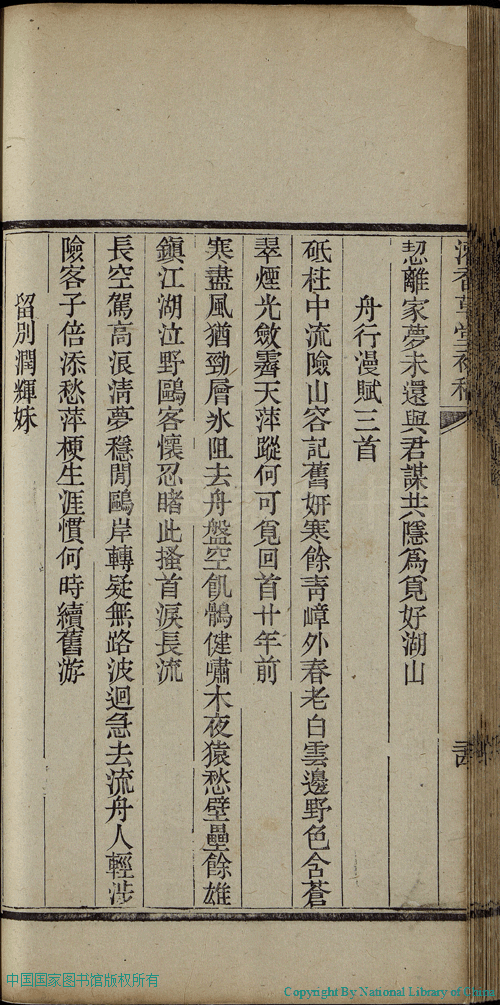 恝離家夢未還與君謀共隱為覓好湖山
舟行漫賦三首
砥柱中流險山容記舊妍寒餘青嶂外春老白雲邊野色含蒼
翠煙光斂霽天萍蹤何可覓回首廿年前
寒盡風猶勁層氷阻去舟盤空飢鶻健嘯木夜猿愁壁壘餘雄
鎮江湖泣野鷗客懷忍睹此搔首淚長流
長空駕高浪清夢穩閒鷗岸轉疑無路波迴急去流舟人輕涉
險客子倍添愁萍梗生涯慣何時續舊游
留別潤輝妹
中国国家图书馆版权所有
Copyright By National Library of China